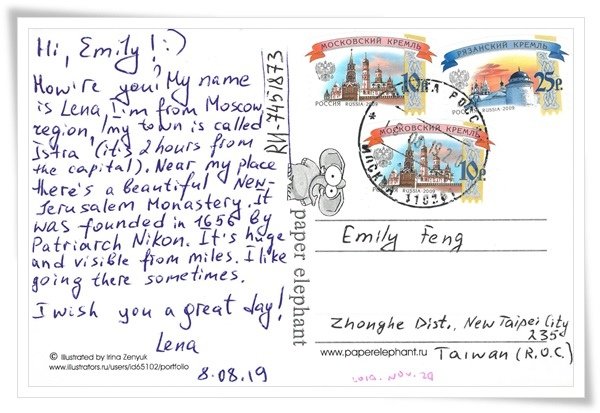 Hi, Emily! :)
How're you? My name
is Lena, I'm from Moscow
region, my town is called
Istra (it's 2 hours from
the capital). Near my place
there's a beautiful New-
Jerusalem Monastery. It
was founded in 1656 by
Patriarch Nikon. It's huge
and visible from miles. I like
going there sometimes.
I wish you a great day!
Lena
8.08.19
© illustrated by Irina Zenyuk
www.illustrators.ru/users/id65102/portfolio
RU-7451873
paper elephant
МОСКОВСКИЙ КРЕМЛЬ
10р.
РОССИЯ RUSSIA·2009
РЯЗАНСКИЙ КРЕМЛЬ
25р.
РОССИЯ RUSSIA·2009
МОСКОВСКИЙ КРЕМЛЬ
10р.
РОССИЯ RUSSIA·2009
МОСКВА
Emily Feng
Zhonghe Dist., New Taipei City
235
Taiwan (R.O.C.)
www.paperelephant.ru
2019. NOV. 20